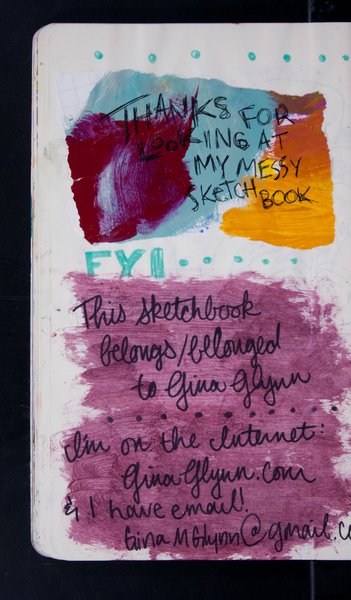 THANKS FOR
LOOKING AT
MY MESSY
SKETCHBOOK
FYI
This sketchbook
belongs/belonged
to Gina Glynn
I'm on the Internet:
GinaGlynn.com
& I have email!
GinaMGlynn@gmail.co